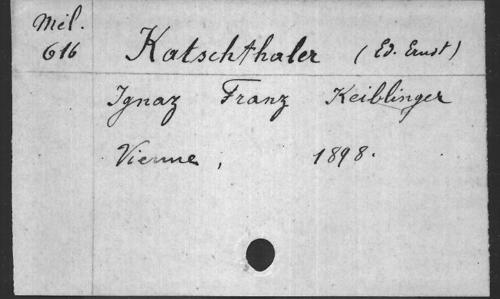 Mél.
616
Katschthaler (Ed. Ernst)
Ignaz Franz Keiblinger
Vienne, 1898.